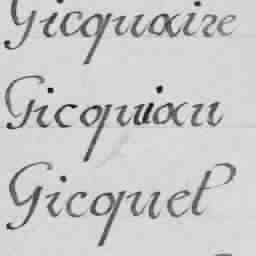 Gicquaire
Gicquiau
Gicquel